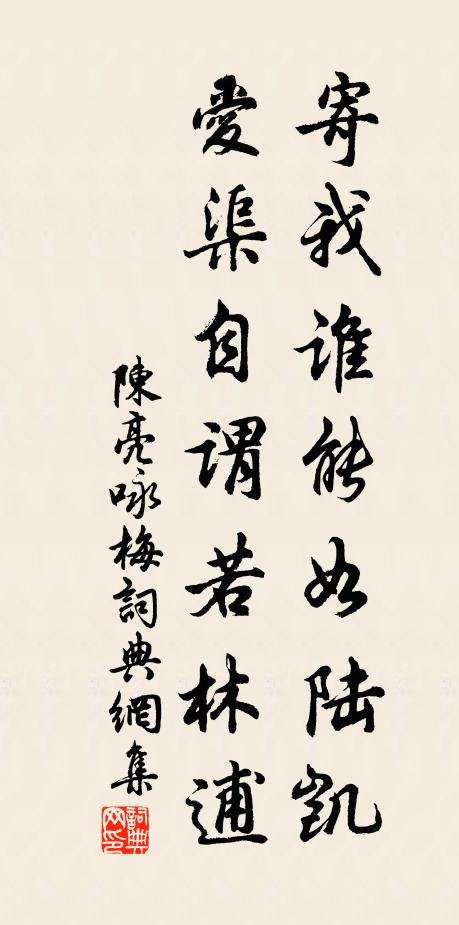 寄我誰能如陆凱
愛渠自謂若林逋
陳亮咏梅詞典網集
詞典网印